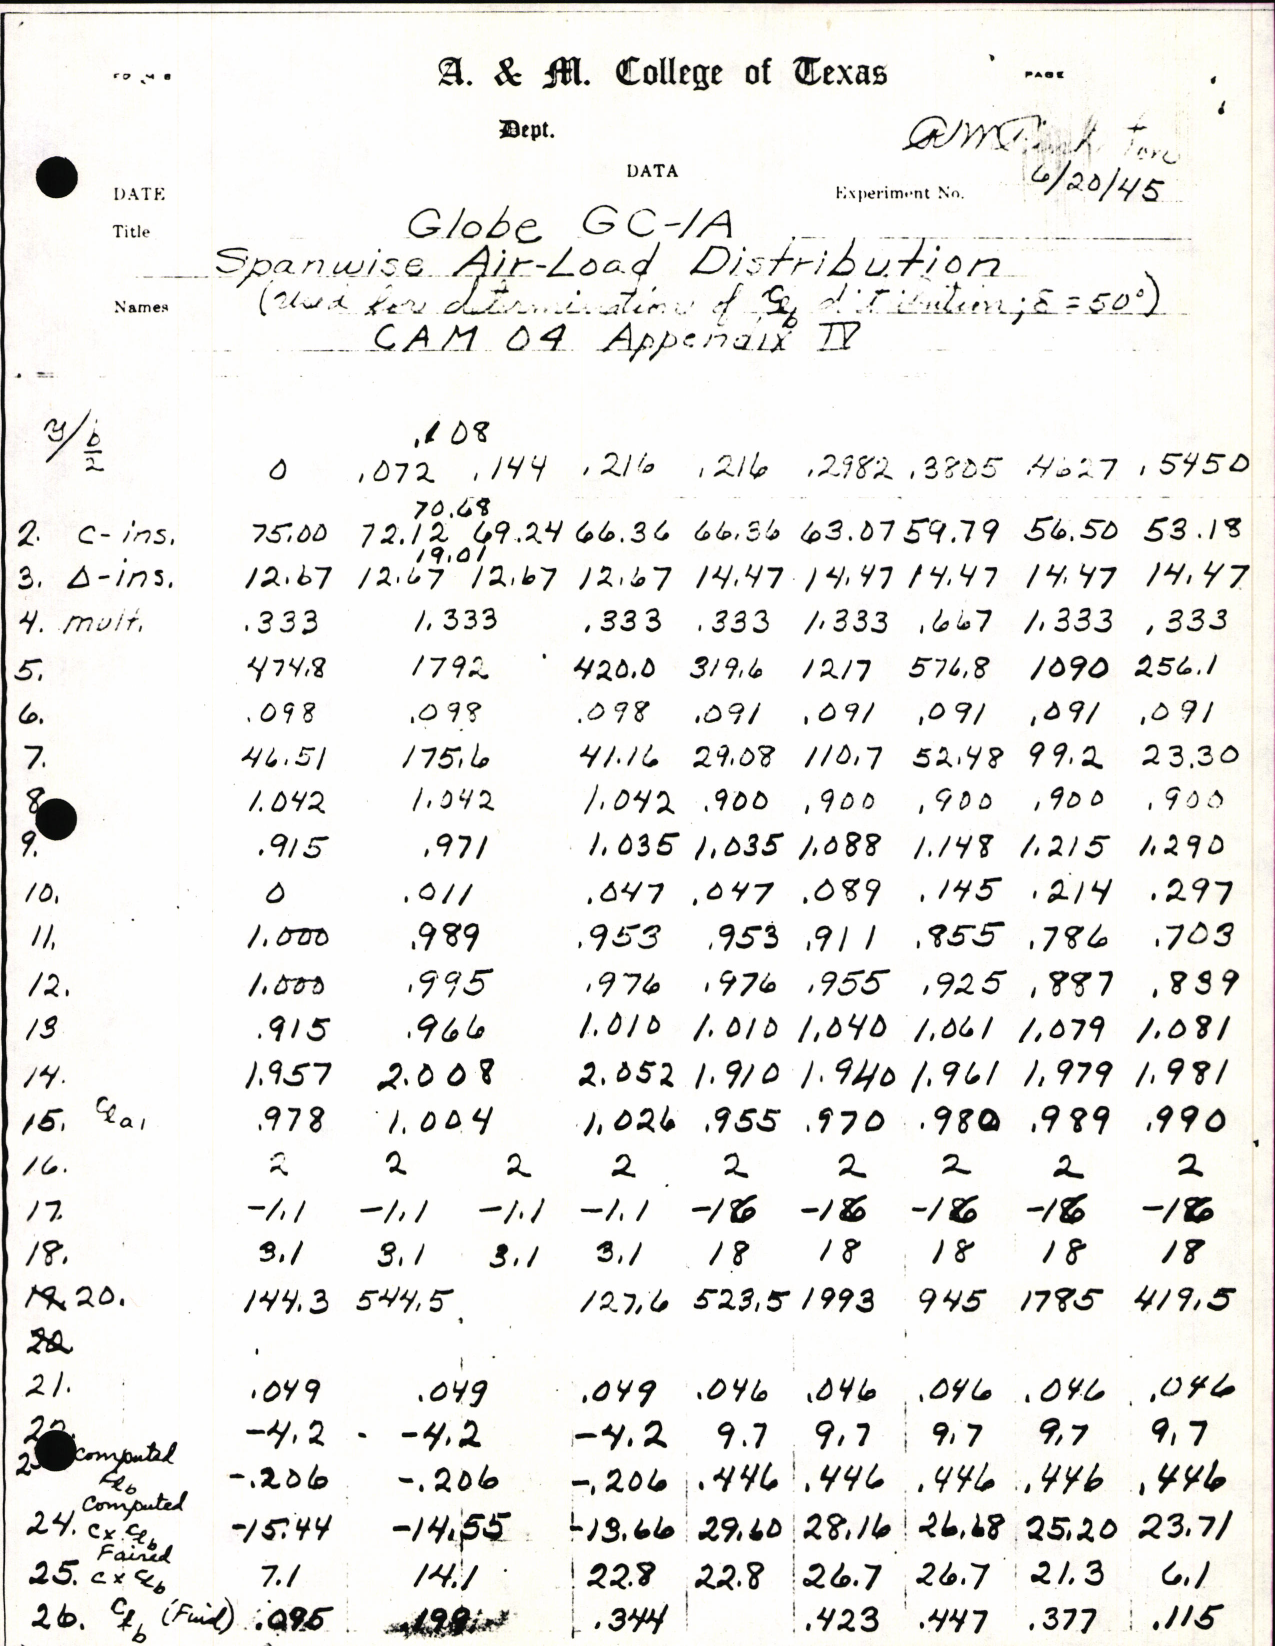 A. & M. College of Texas
PAGE
Dept.
DATA
DATE
Experiment No.
6/20/45
Title
Globe GC-1A
Spanwise Air-Load Distribution
Names
(Used for determination of Clb distribution; δ = 50°)
CAM 04 Appendix IV
.108
y/b/2 0 .072 .144 .216 .216 .2982 .3805 .4627 .5450
70.68
2. c-ins. 75.00 72.12 69.24 66.36 66.36 63.07 59.79 56.50 53.18
19.01
3. Δ-ins. 12.67 12.67 12.67 12.67 14.47 14.47 14.47 14.47 14.47
4. mult. .333 1.333 .333 .333 1.333 .667 1.333 .333
5. 474.8 1792 420.0 319.6 1217 576.8 1090 256.1
6. .098 .098 .098 .091 .091 .091 .091 .091
7. 46.51 175.6 41.16 29.08 110.7 52.48 99.2 23.30
8 1.042 1.042 1.042 .900 .900 .900 .900 .900
9. .915 .971 1.035 1.035 1.088 1.148 1.215 1.290
10. 0 .011 .047 .047 .089 .145 .214 .297
11. 1.000 .989 .953 .953 .911 .855 .786 .703
12. 1.000 .995 .976 .976 .955 .925 .887 .839
13 .915 .966 1.010 1.010 1.040 1.061 1.079 1.081
14. 1.957 2.008 2.052 1.910 1.940 1.961 1.979 1.981
15. Cla1 .978 1.004 1.026 .955 .970 .980 .989 .990
16. 2 2 2 2 2 2 2 2 2
17. -1.1 -1.1 -1.1 -1.1 -16 -16 -16 -16 -16
18. 3.1 3.1 3.1 3.1 18 18 18 18 18
20. 144.3 544.5 127.6 523.5 1993 945 1785 419.5
20
21. .049 .049 .049 .046 .046 .046 .046 .046
22. -4.2 -4.2 -4.2 9.7 9.7 9.7 9.7 9.7
computed
Clb -.206 -.206 -.206 .446 .446 .446 .446 .446
Computed
24. C x Clb -15.44 -14.55 -13.66 29.60 28.16 26.68 25.20 23.71
Faired
25. C x Clb 7.1 14.1 22.8 22.8 26.7 26.7 21.3 6.1
26. Clb (Final) .095 .199 .344 .423 .447 .377 .115